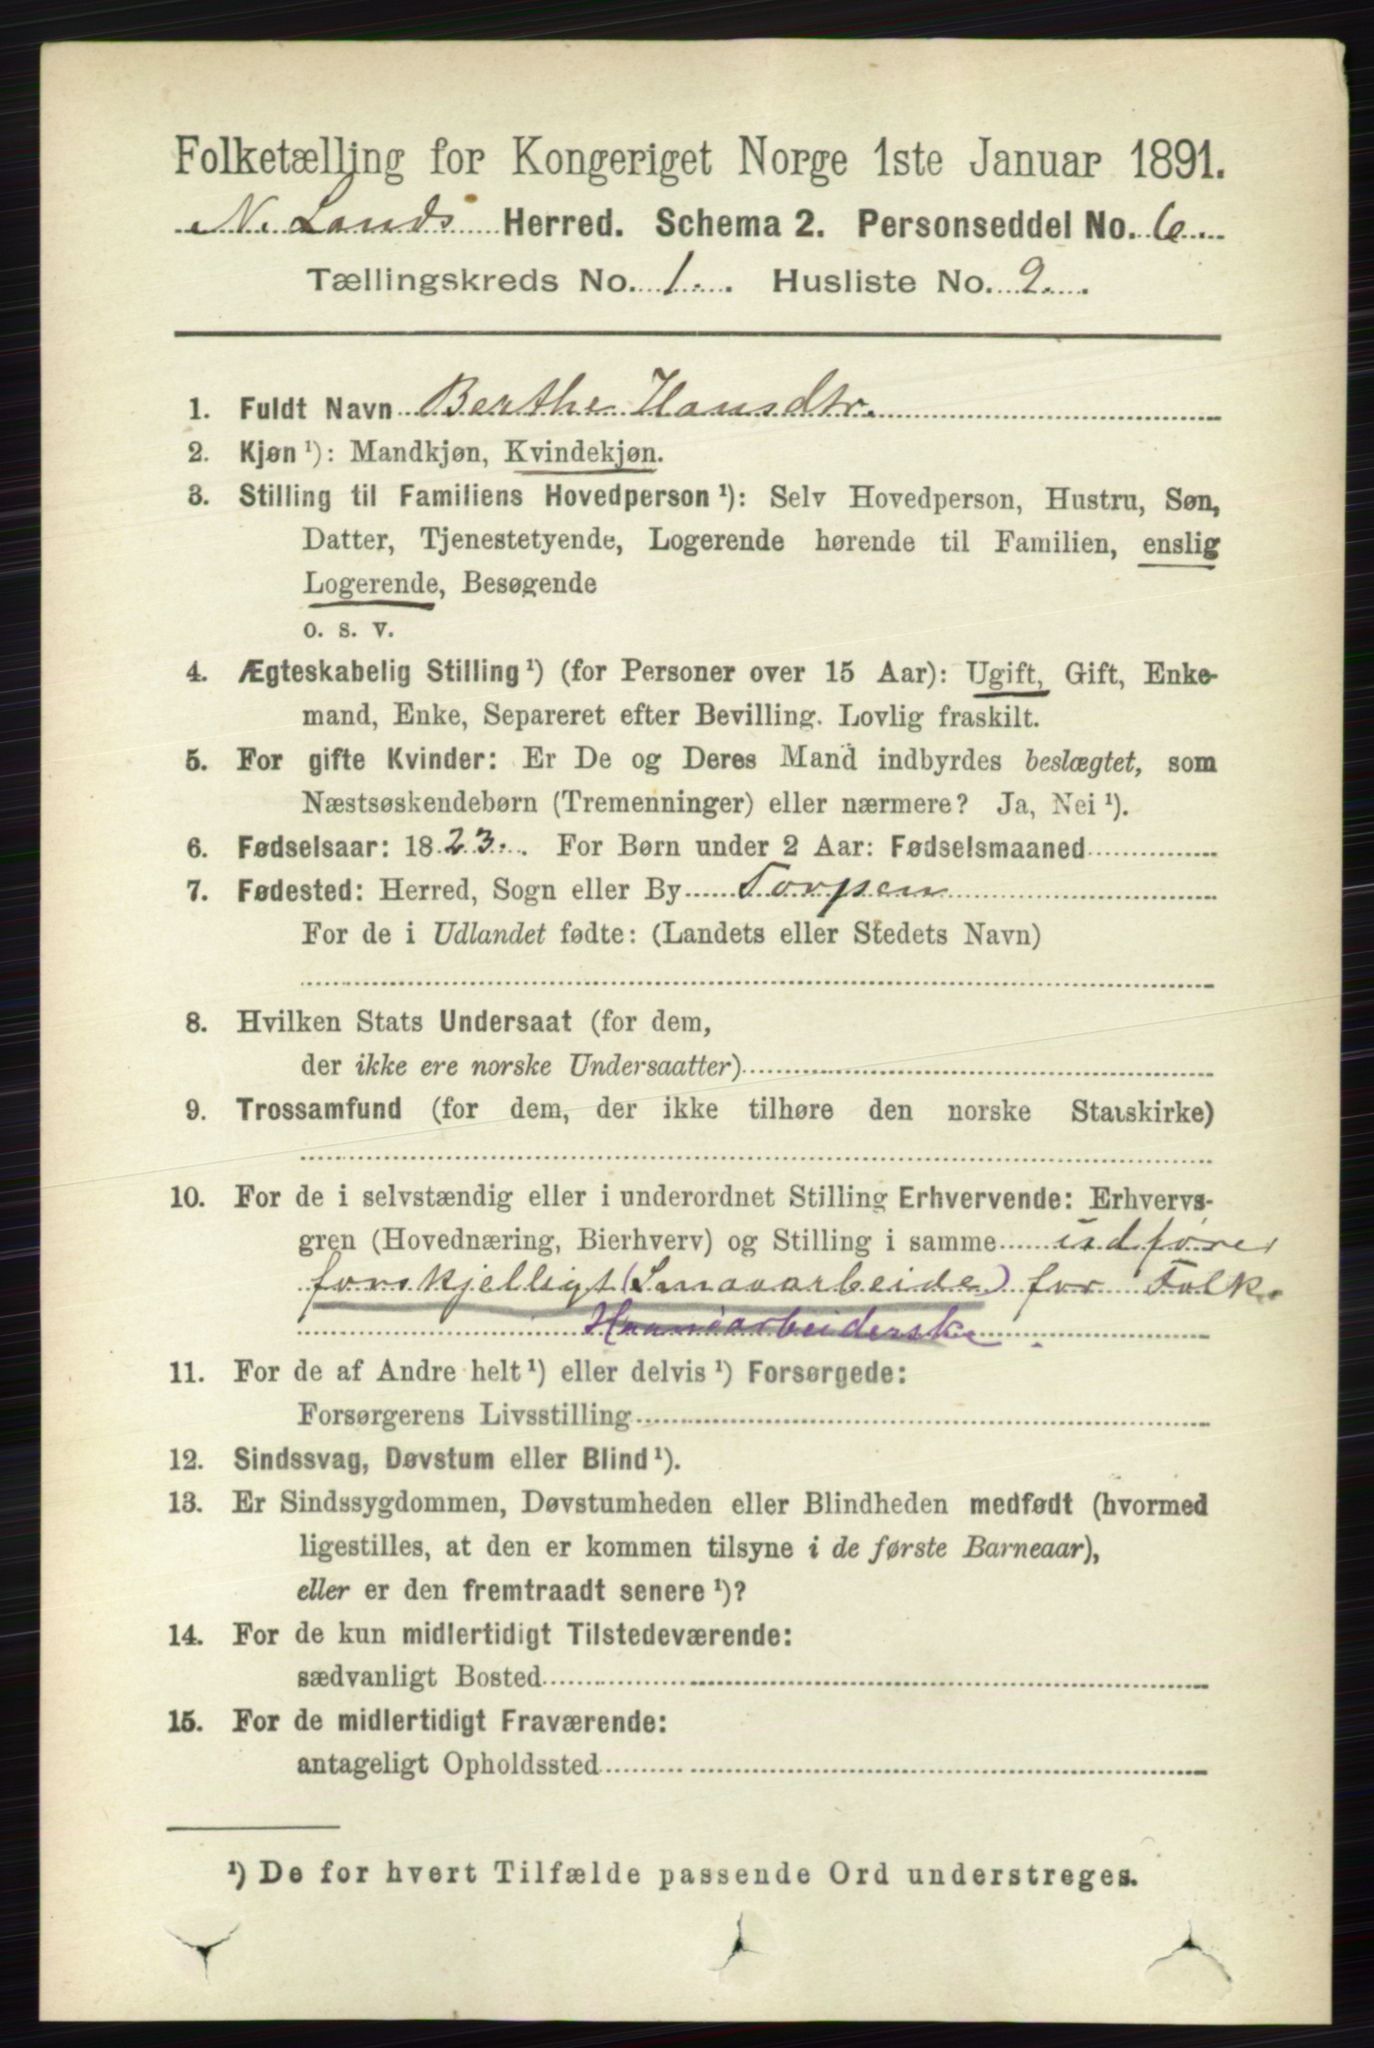 Folketælling for Kongeriget Norge 1ste Januar 1891.
N. Lands Herred. Schema 2. Personseddel No. 6
Tællingskreds No. 1. Husliste No. 2.
1. Fuldt Navn Berthe Hansdtr.
2. Kjøn ¹): Mandkjøn, Kvindekjøn.
3. Stilling til Familiens Hovedperson ¹): Selv Hovedperson, Hustru, Søn,
Datter, Tjenestetyende, Logerende hørende til Familien, enslig
Logerende, Besøgende
o. s. v.
4. Ægteskabelig Stilling ¹) (for Personer over 15 Aar): Ugift, Gift, Enke-
mand, Enke, Separeret efter Bevilling. Lovlig fraskilt.
5. For gifte Kvinder: Er De og Deres Mand indbyrdes beslægtet, som
Næstsøskendebørn (Tremenninger) eller nærmere? Ja, Nei ¹).
6. Fødselsaar: 1823. For Børn under 2 Aar: Fødselsmaaned
7. Fødested: Herred, Sogn eller By Torpen
For de i Udlandet fødte: (Landets eller Stedets Navn)
8. Hvilken Stats Undersaat (for dem,
der ikke ere norske Undersaatter)
9. Trossamfund (for dem, der ikke tilhøre den norske Statskirke)
10. For de i selvstændig eller i underordnet Stilling Erhvervende: Erhvervs-
gren (Hovednæring, Bierhverv) og Stilling i samme udfører
forskjelligt (Smaaarbeide) for Folk.
Haandarbeiderske.
11. For de af Andre helt ¹) eller delvis ¹) Forsørgede:
Forsørgerens Livsstilling
12. Sindssvag, Døvstum eller Blind ¹).
13. Er Sindssygdommen, Døvstumheden eller Blindheden medfødt (hvormed
ligestilles, at den er kommen tilsyne i de første Barneaar),
eller er den fremtraadt senere ¹)?
14. For de kun midlertidigt Tilstedeværende:
sædvanligt Bosted
15. For de midlertidigt Fraværende:
antageligt Opholdssted
¹) De for hvert Tilfælde passende Ord understreges.